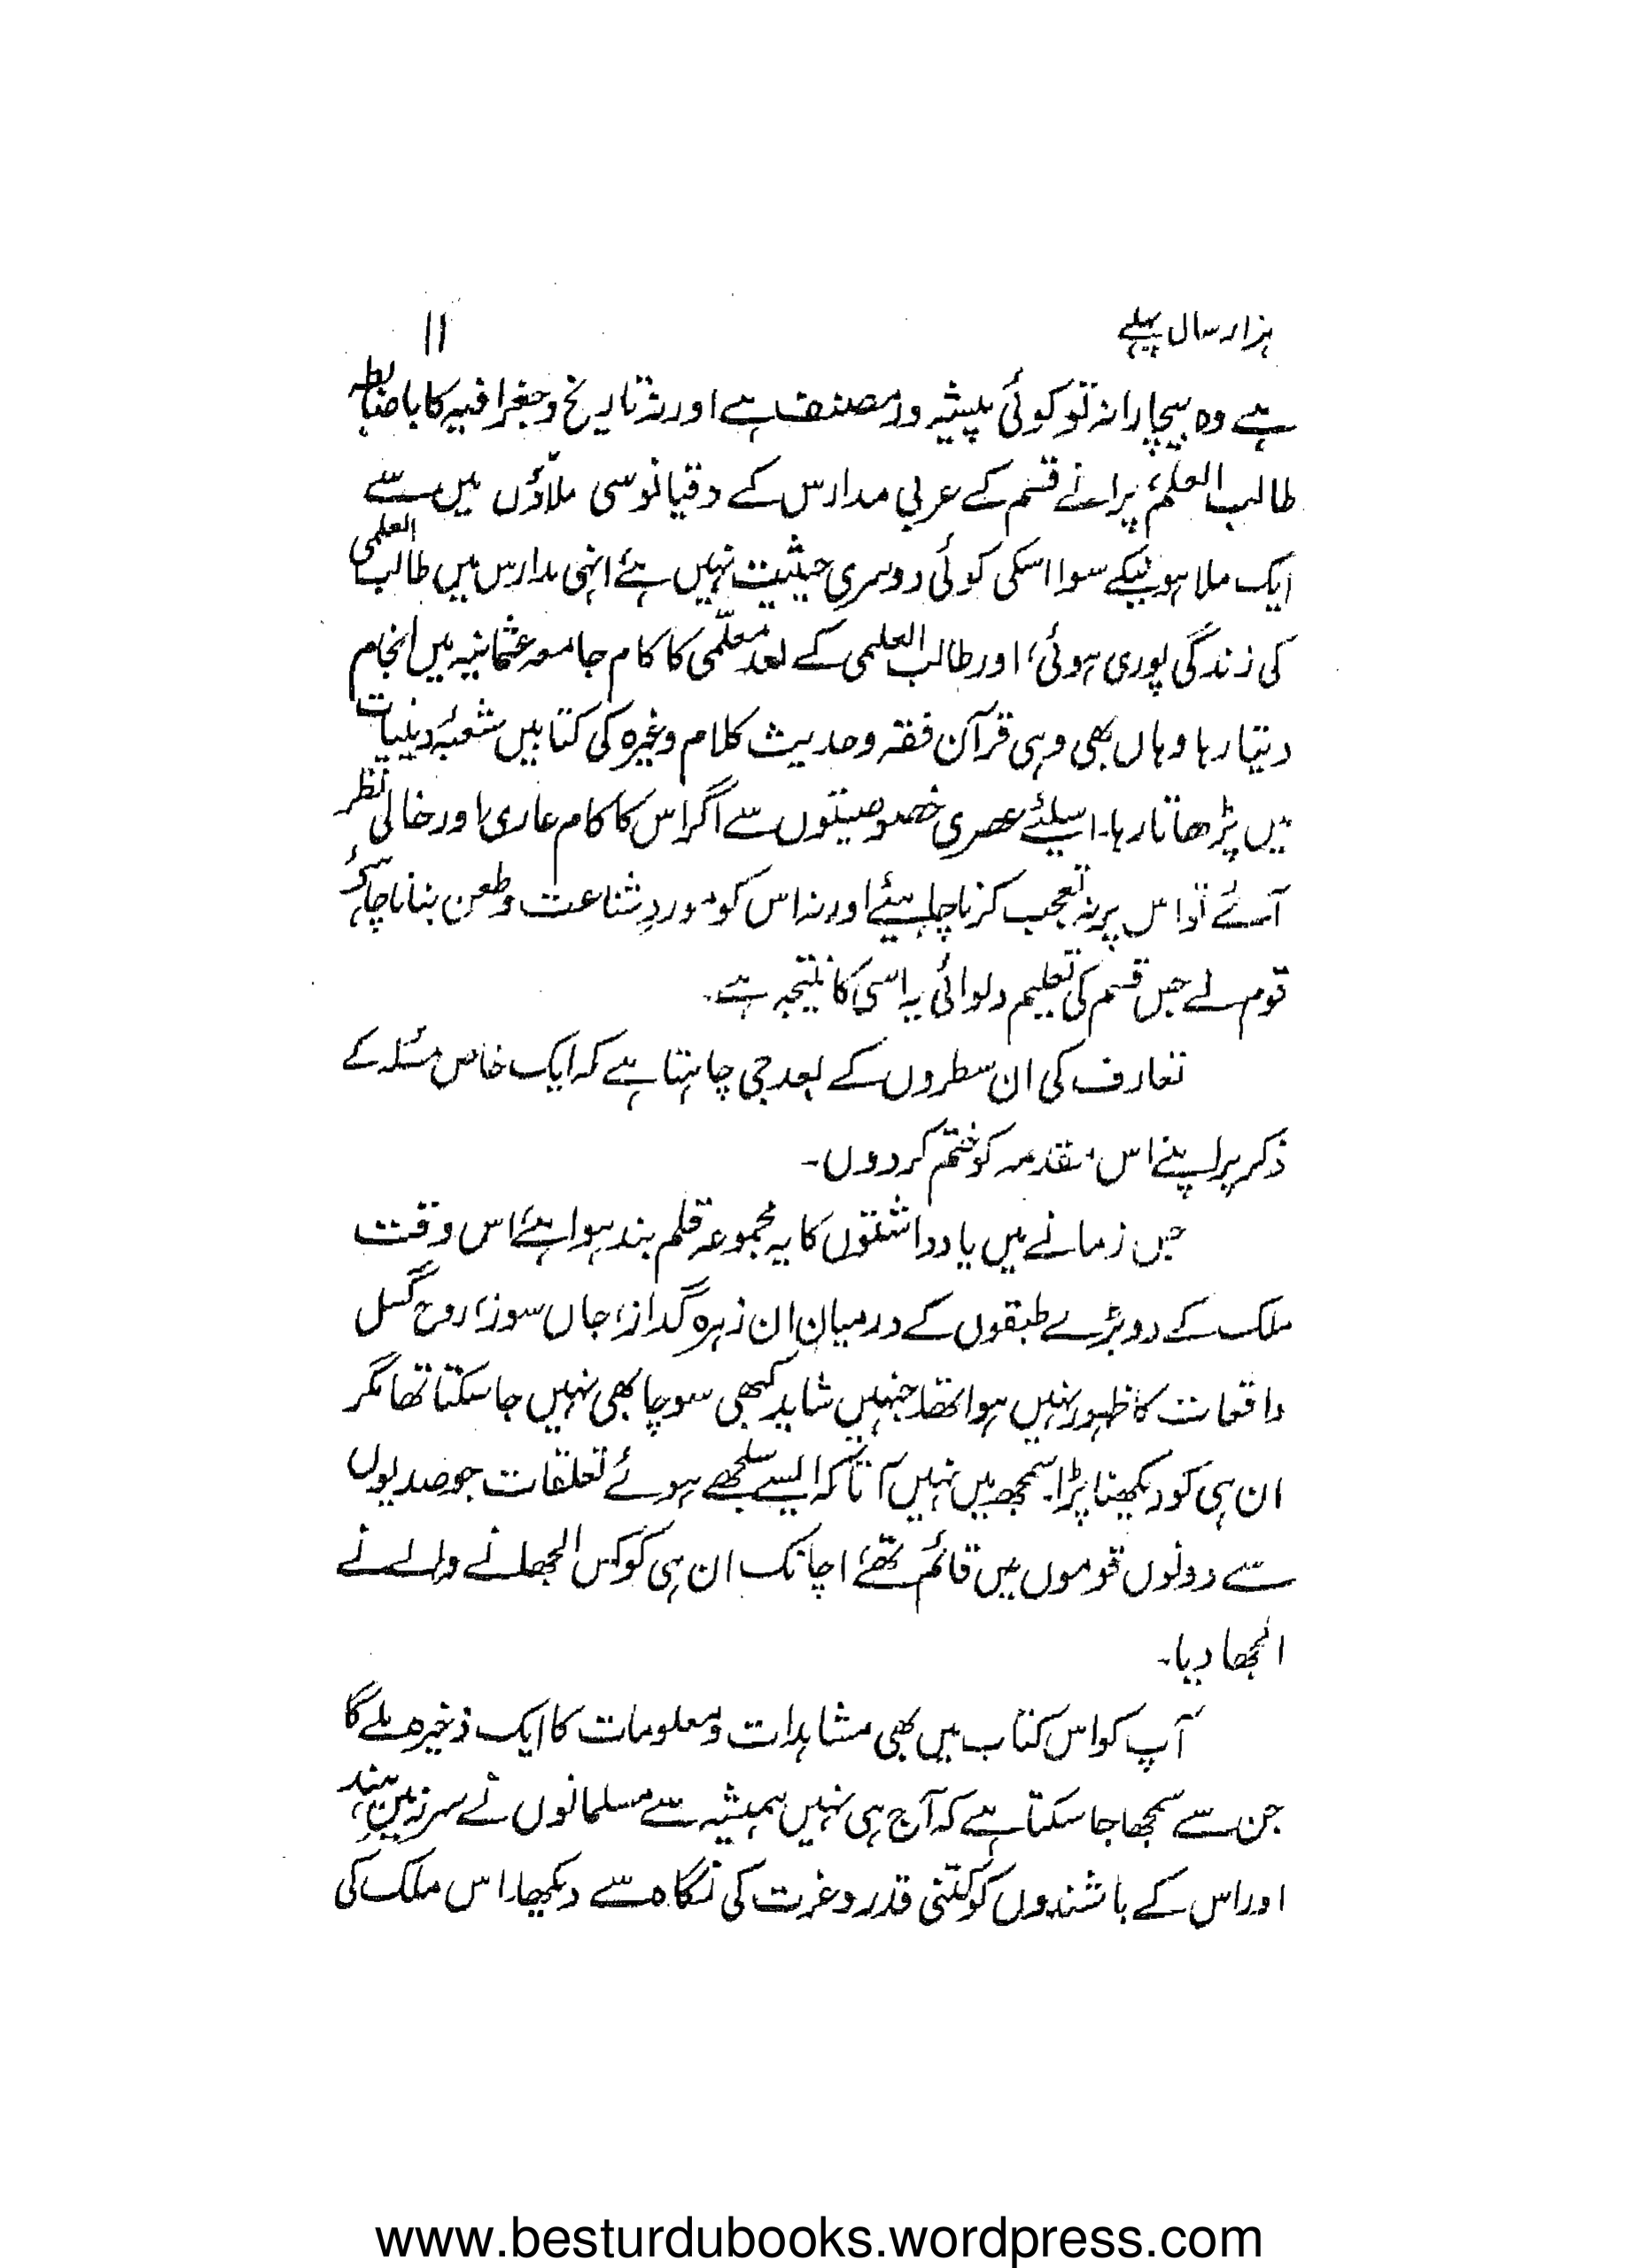 ہزار سال پہلے ۱۱
ہے وہ بیچارا نہ تو کوئی پیشہ ور مصنف ہے اور نہ تاریخ و جغرافیہ کا باضابطہ
طالب العلم، پرانے قسم کے عربی مدارس کے دقیانوسی ملاؤں میں سے
ایک ملا ہونیکے سوا اسکی کوئی دوسری حیثیت نہیں ہے، انہی مدارس میں طالب العلمی
کی زندگی پوری ہوئی، اور طالب العلمی کے بعد معلّمی کا کام جامعہ عثمانیہ میں انجام
دیتا رہا وہاں بھی وہی قرآن فقہ و حدیث کلام وغیرہ کی کتابیں شعبۂ دینیات
میں پڑھاتا رہا۔ اسلئے عصری خصوصیتوں سے اگر اس کا کام عاری اور خالی نظر
آئے تو اس پر نہ تعجب کرنا چاہیئے اور نہ اس کو موردِ شناعت و طعن بنانا چاہئے کہ
قوم نے جس قسم کی تعلیم دلوائی یہ اسی کا نتیجہ ہے۔
تعارف کی ان سطروں کے بعد جی چاہتا ہے کہ ایک خاص مسئلہ کے
ذکر پر اپنے اس مقدمہ کو ختم کردوں۔
جس زمانے میں یادداشتوں کا یہ مجموعہ قلم بند ہوا ہے، اس وقت
ملک کے دو بڑے طبقوں کے درمیان ان زہرہ گداز، جاں سوز، روح گسل
واقعات کا ظہور نہیں ہوا تھا، جنہیں شاید کبھی سوچا بھی نہیں جاسکتا تھا مگر
ان ہی کو دیکھنا پڑا۔ سمجھ میں نہیں آتا کہ ایسے سلجھے ہوئے تعلقات جو صدیوں
سے دونوں قوموں میں قائم تھے، اچانک ان ہی کو کس الجھانے والے نے
الجھا دیا۔
آپ کو اس کتاب میں بھی مشاہدات و معلومات کا ایک ذخیرہ ملے گا
جن سے سمجھا جاسکتا ہے کہ آج ہی نہیں ہمیشہ سے مسلمانوں نے سرزمینِ ہند،
اور اس کے باشندوں کو کتنی قدر و عزت کی نگاہ سے دیکھا، اس ملک کی
www.besturdubooks.wordpress.com